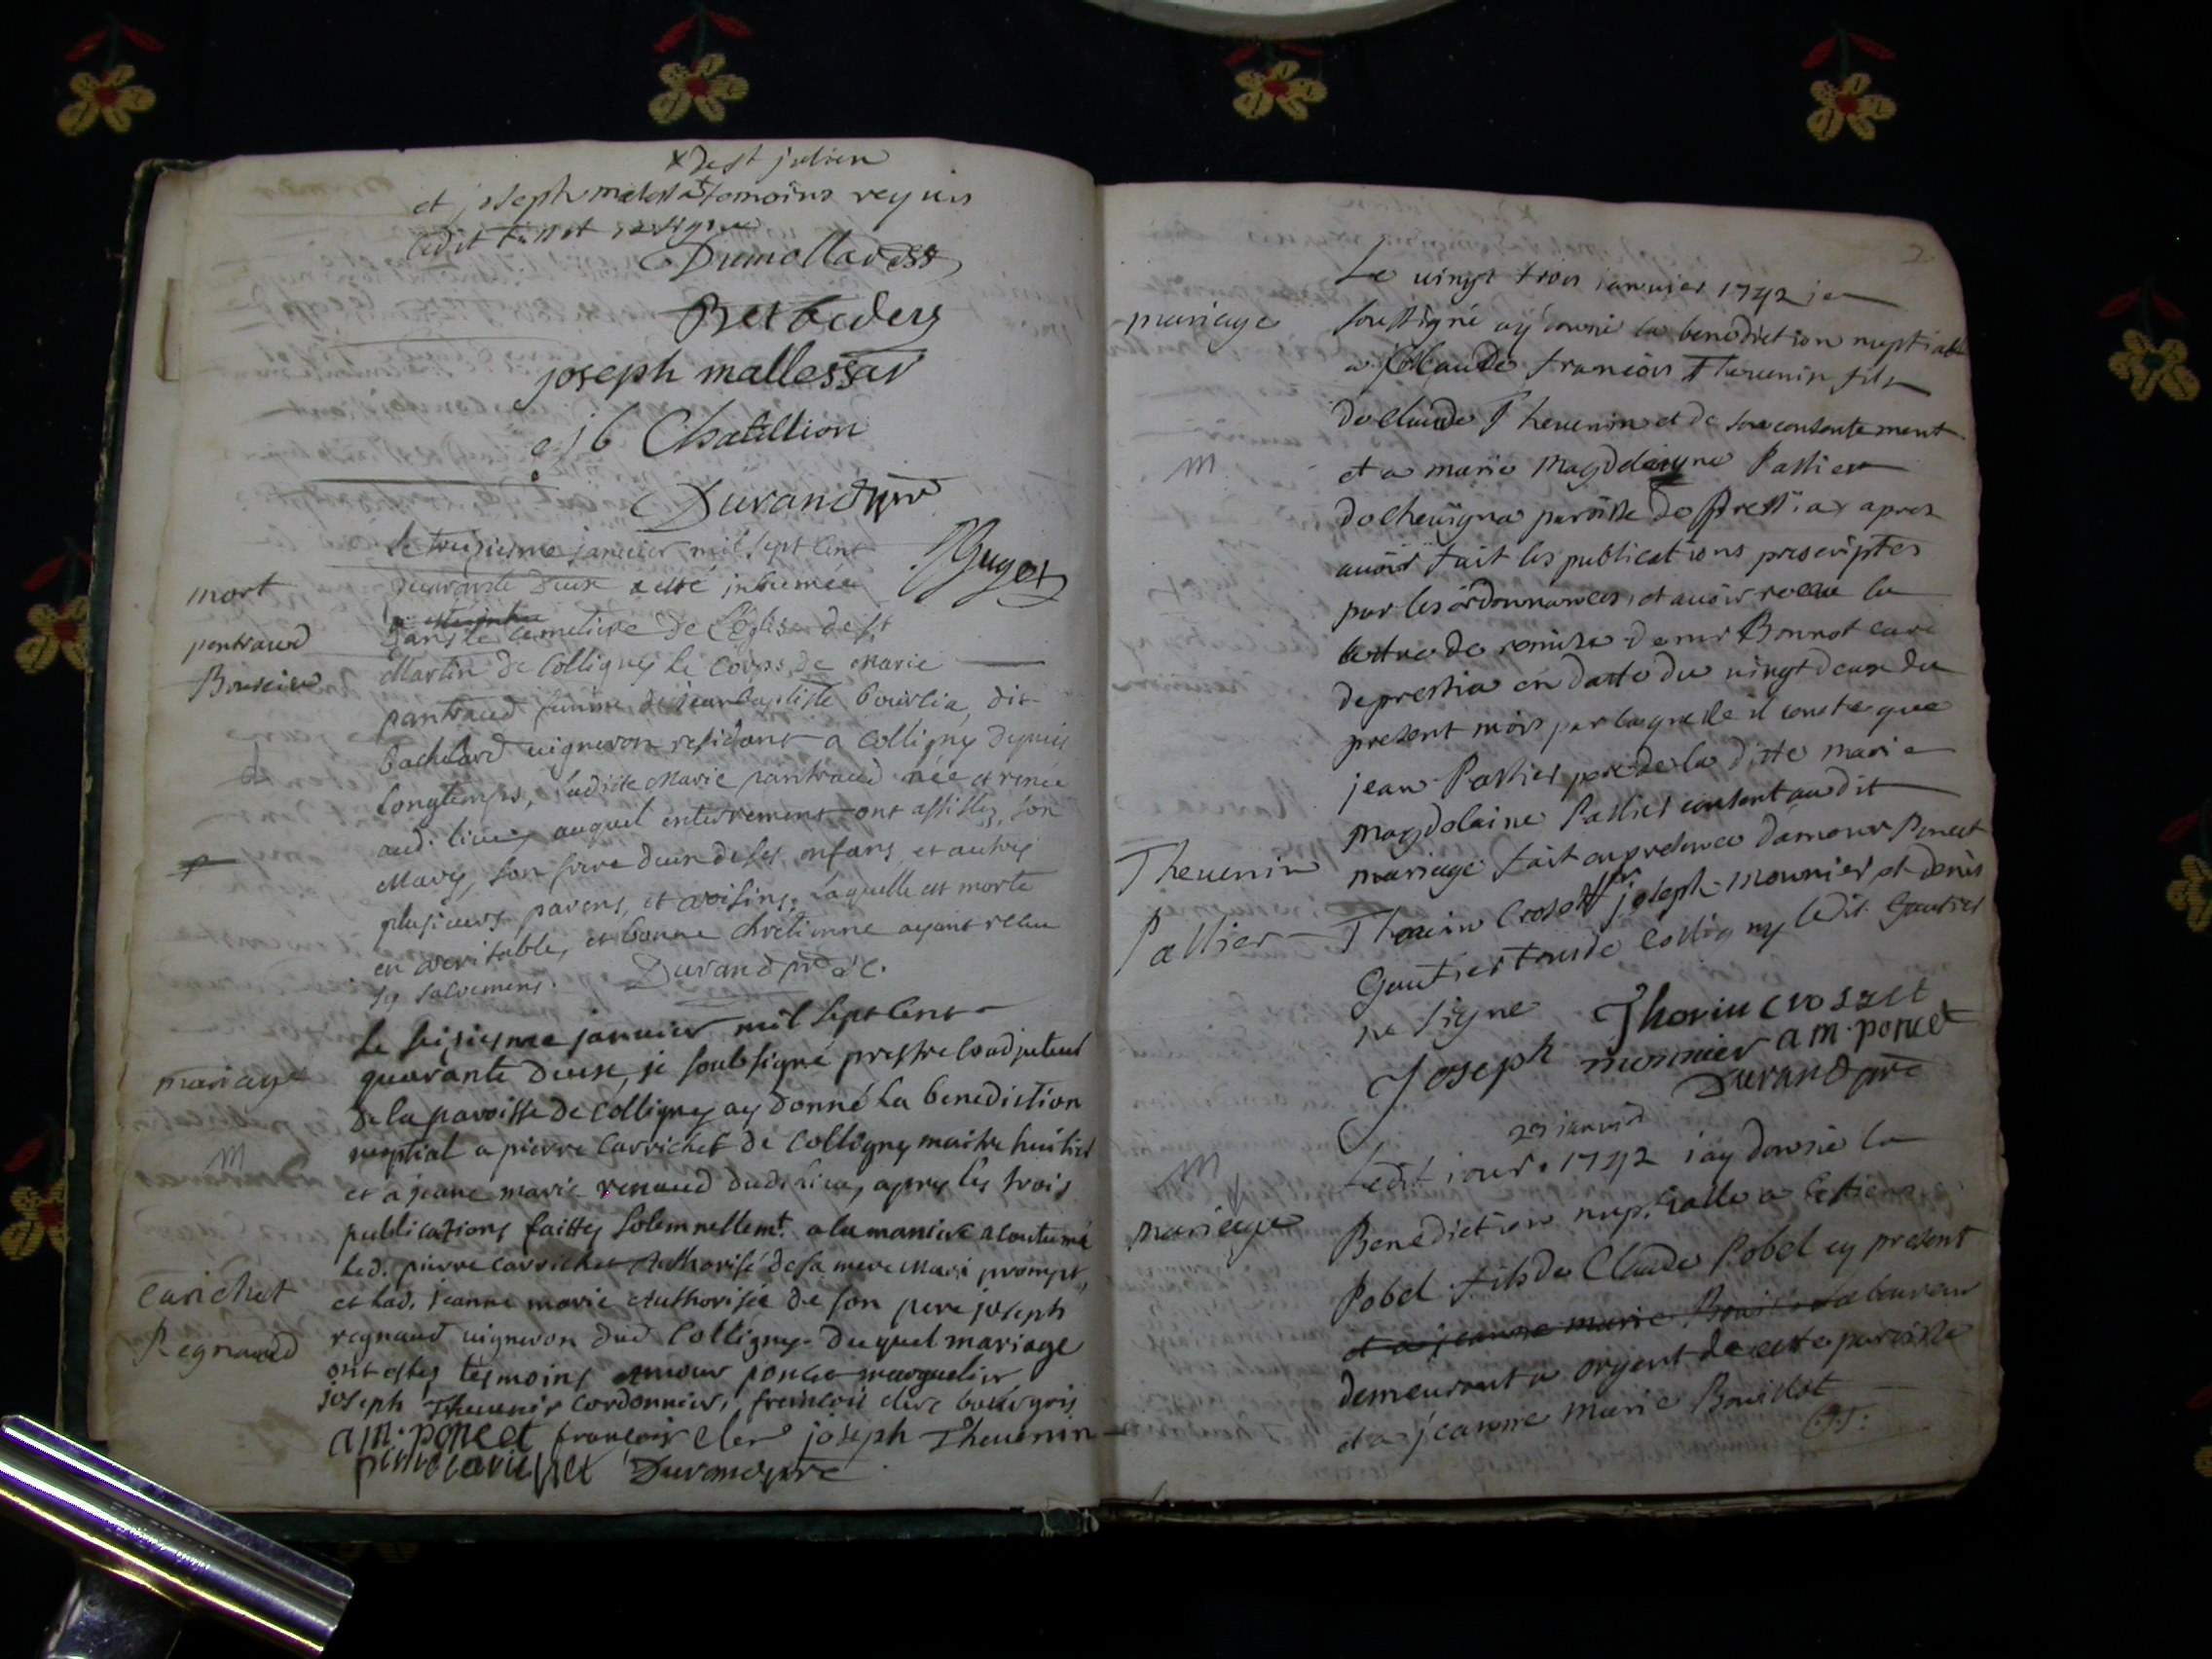 x de st julien
et joseph malessa temoins requis
ledit
Dumollard
joseph mallessar
Chatillion
Durand pre
le treisiesme janvier mil sept cent
quarante deux a esté inhumée
Buget
mort
dans le cemetiere de l'eglise de st
pentraud
Martin de Colligny le corps de Marie
Bourcier
pantraud femme de jean baptiste bourlia, dit
vigneron residant a Colligny depuis
longtemps, ladicte Marie pantraud née et
aud. lieu, auquel enterrement ont assistez, son
Mary, son frere deux de ses enfans, et autres
plusieurs parens, et voisins, laquelle est morte
en veritable, et bonne chretienne ayant receu
ses sacremens. Durand pre
le seisiesme janvier mil sept cent
quarante deux, je soubsigné prestre coadjuteur
mariage
de la paroisse de Colligny ay donné la benediction
nuptial a pierre Carrichet de Colligny maitre huilier
m
et a jeane marie renaud dud. lieu, apres les trois
publications faittes solemnellemt. a la maniere acoutumé
led. pierre carrichet Authorisé de sa mere Mari prompt,
Carichet
et lad. jeanne marie Authorisée de son pere joseph
Regnaud
regnaud vigneron dud Colligny. duquel mariage
ont estes tesmoins amour poncet
joseph Thevenin cordonnier, francois clerc bourgois
am. poncet françois clerc joseph Thevenin
Durand pre
2
Le vingt trois ianvier 1742 je
mariage
soussigné ay donné la benediction nuptiale
a Claude francois Thevenin fils
de Claude Thevenin et de son consentement
m
et a marie Magdelayne Pallier
de chevigna paroisse de Pressia apres
avoir fait les publications prescriptes
par les ordonnances, et avoir receu la
lettre de remise de mr Bonnot curé
de pressia en datte du vingt deux du
present mois par laquelle il conste que
jean Pallier pere de la ditte marie
magdelaine Pallier consent au dit
Thevenin
mariage fait en presence d'amour Poncet
Pallier
Thorin Crozet joseph Mounier et denis
Gautier tous de Colligny ledit Gautier
ne signe Thorin Crozet
Joseph monnier a m. poncet
Durand pre
23 ianvier
m
Ledit iour 1742 i'ay donné la
mariage
Benediction nuptialle a
Pobel fils de Claude Pobel cy present
et a jeanne marie laboureur
demeurant a orgent de cette paroisse
et a jeanne marie Bouidat